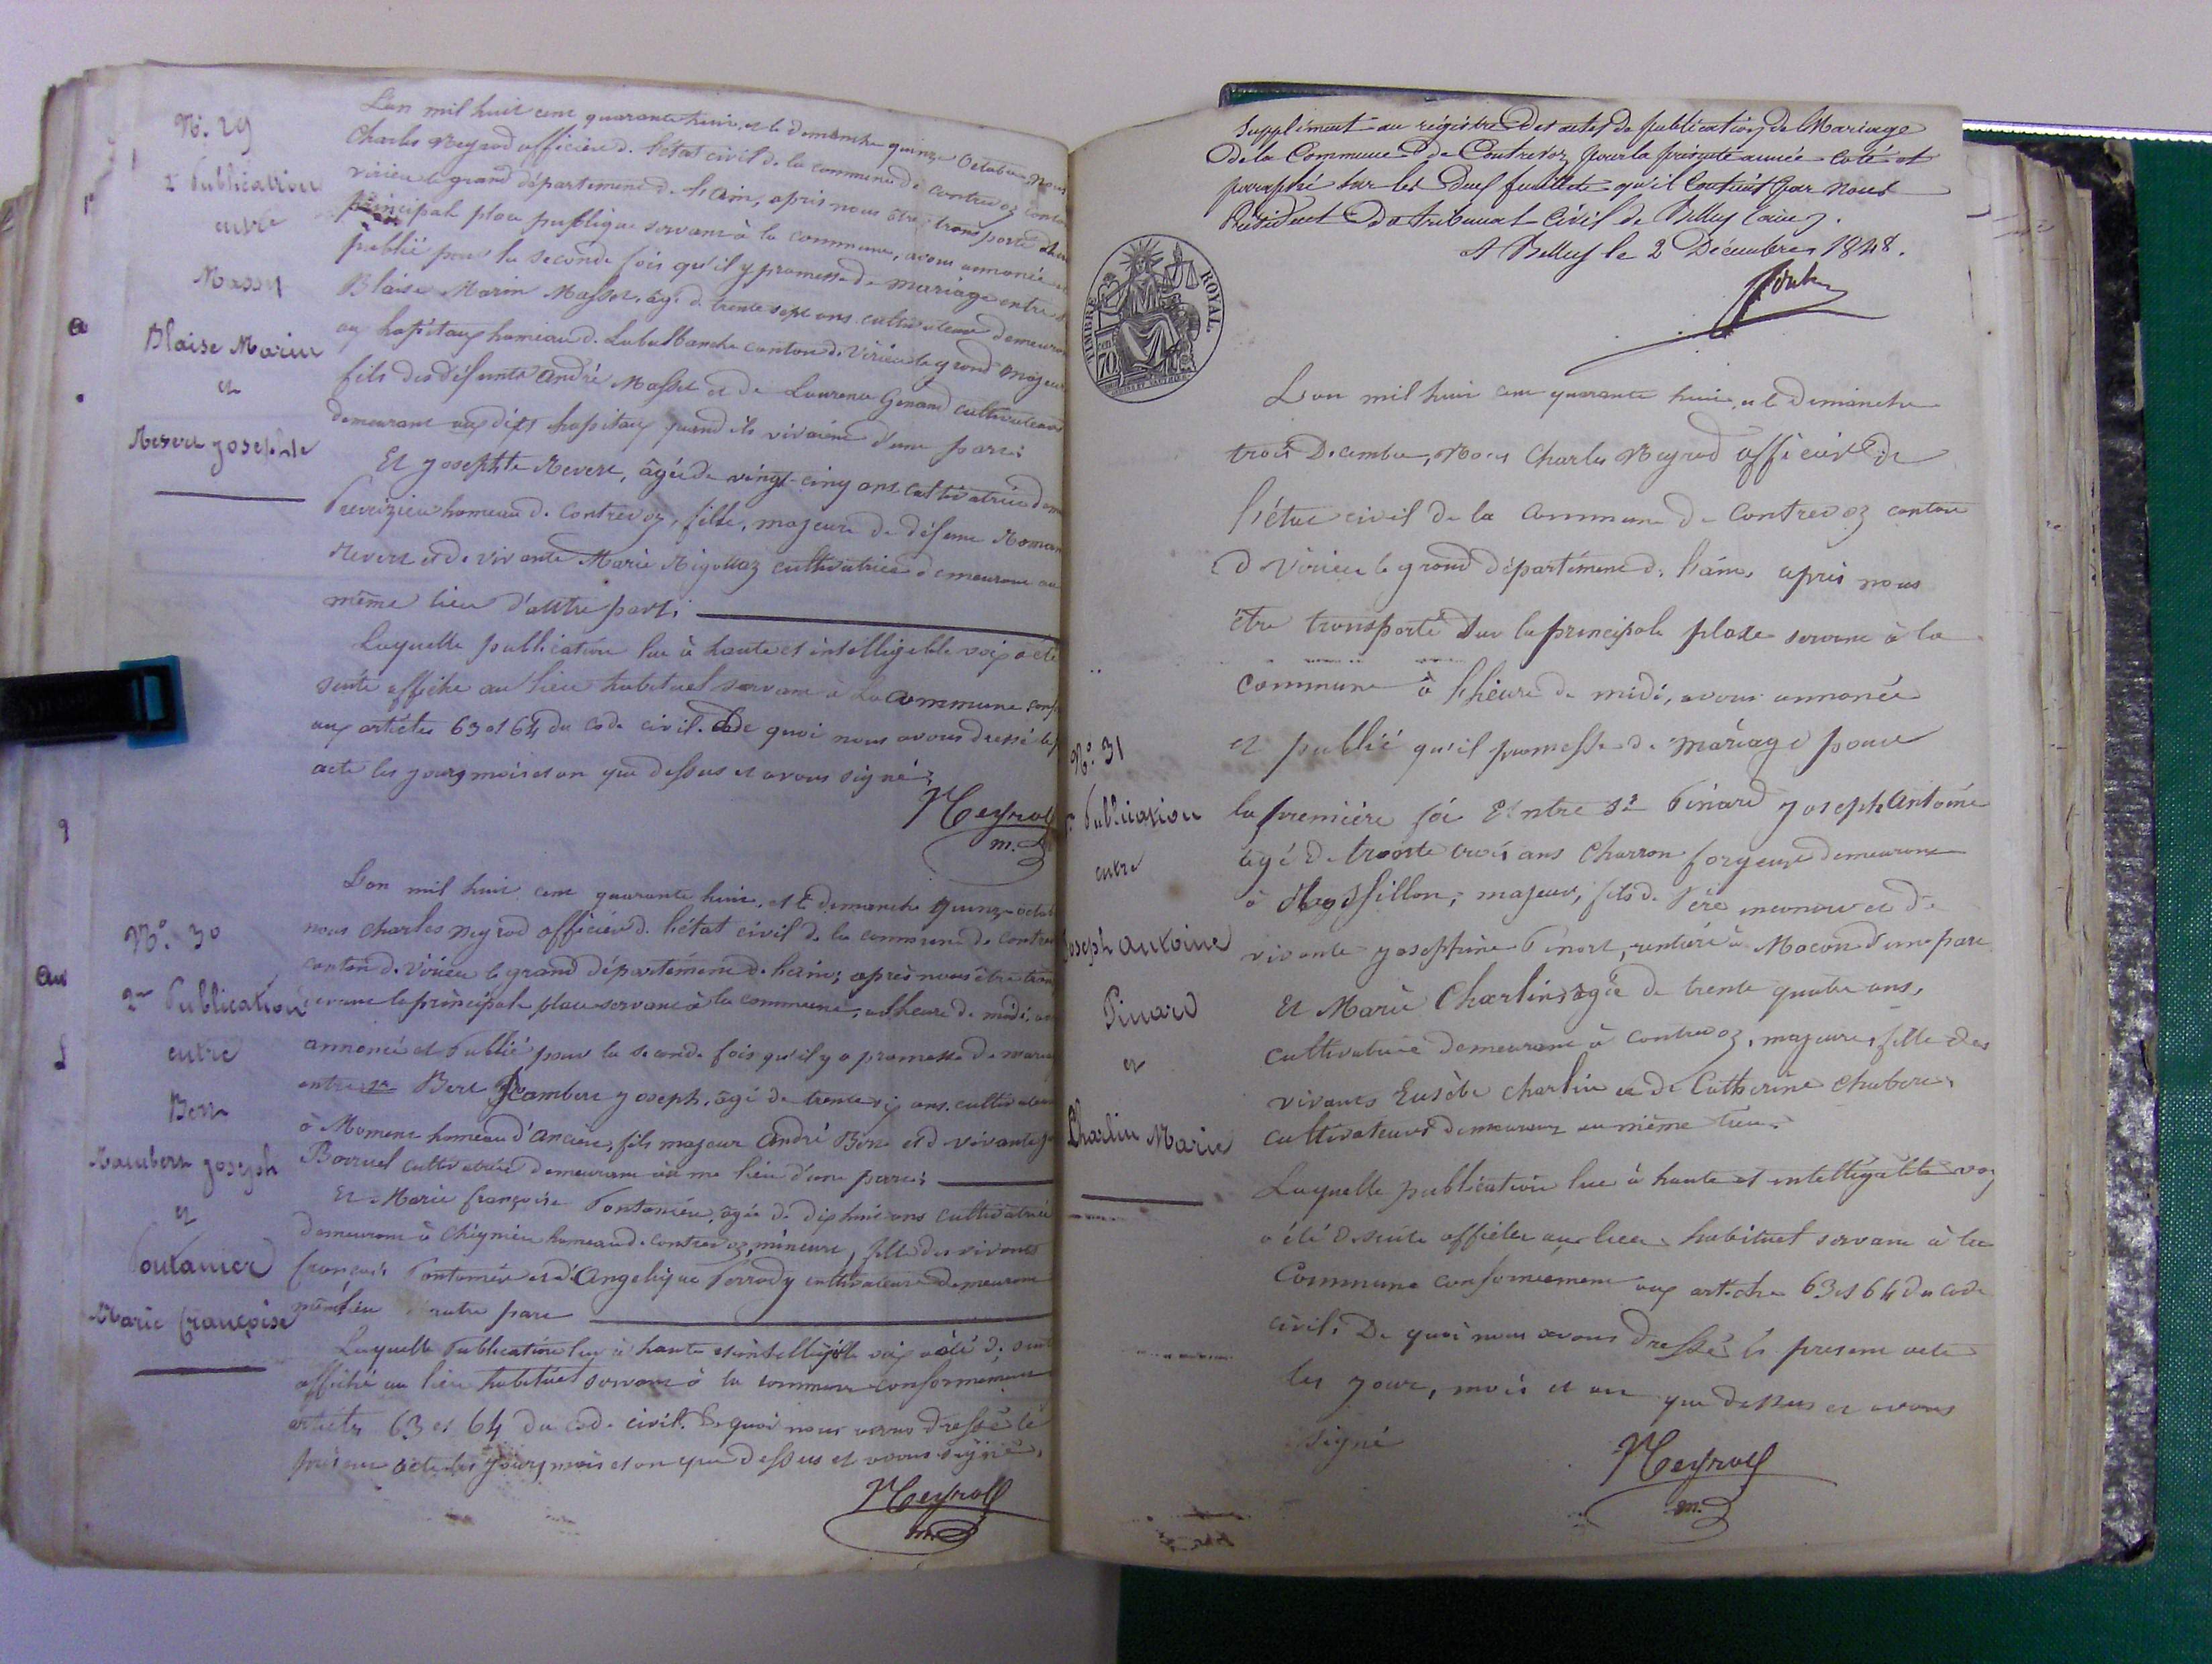 N°. 29
2e Publication
entre
Massy
Blaise Marin
et
Revert josephte
L'an mil huit cent quarante huit, et le dimanche quinze Octobre Nous
Charles Neyrod officier d. l'état civil d. la commune de contrevoz canton
virieu le grand département d. l'ain, après nous être transporté
principale place publique servant à la commune, avons annoncé et
publié pour la seconde fois qu'il y promesse de mariage entre
Blaise Marin Masset, âgé d. trente sept ans cultivateur demeurant
aux hopitaux hameau d. canton d. Virieu le grand majeur
fils des défunts andré Masset et de Laurence Genand cultivateurs
demeurant aux dits hopitaux quand ils vivaient d'une part;
Et josephte Revert, âgée de vingt-cinq ans cultivatrice
Preveizieu hameau d. contrevoz, fille, majeure de défunt Romain
Revert et de vivante Marie Rigollaz cultivatrice demeurant au
même lieu d'autre part;
Laquelle publication lue à haute et intelligible voix a été
suite affiche au lieu habituel servant à la commune
aux articles 63 et 64 du code civil. De quoi nous avons dressé le
acte les jours mois et an que dessus et avons signé;
Neyrod
m.
N°. 30
2me Publication
entre
Bert
Rambert joseph
et
Fontanier
Marie françoise
L'an mil huit cent quarante huit, et le dimanche quinze octob
nous charles neyrod officier d. l'état civil de la commune de contre
canton d. virieu le grand département d. l'ain; après nous être
devant la principale place servant à la commune, à l'heure de midi,
annoncé et Publié pour la seconde fois qu'il y a promesse de
entre sr Bert joseph, âgé de trente six ans, cultivateur
à hameau d'ancien, fils majeur andré Bert et d vivante
Borruel cultivatrice demeurant même lieu d'une part;
Et Marie françoise Fontanier, âgée de dix huit ans cultivatrice
demeurant à chignieu hameau d. contrevoz, mineure, fille des vivants
françois Fontanier et d'Angelique Perrody cultivateurs demeurant
même lieu d'autre part
Laquelle Publication lue à haute et intelligible voix a été d. suite
affiché au lieu habituel servant à la commune conformément
articles 63 et 64 du code civil. De quoi nous avons dressé le
présent acte les jours, mois et an que dessus et avons signé.
Neyrod
m.
Supplément au régistre des actes de publication de Mariage
de la Commune de Contrevoz, pour la présente année coté et
paraphé sur les deux feuillets qu'il contient par nous
Président du tribunal civil de Belley (ain).
A Belley le 2 Décembre 1848.
TIMBRE ROYAL
70
N°. 31
1re Publication
entre
Joseph antoine
Pinard
et
Charlin Marie
L'an mil huit cent quarante huit, et le dimanche
trois Décembre, Nous Charles Neyrod officier de
l'état civil de la commune de contrevoz canton
d virieu le grand département d. l'ain, après nous
être transporté sur la principale place servant à la
commune à l'heure de midi, avons annoncé
et publié qu'il promesse d. mariage pour
la première foi Entre sr Pinard joseph antoine
agé de trente trois ans charron forgeur demeurant
à Rossillon, majeur, fils d. Père inconnu et de
vivante josephine Pinart, rentière à Macon d'une part
Et Marie Charlin, agée de trente quatre ans,
cultivatrice demeurant à contrevoz, majeure, fille des
vivants Eusèbe charlin et de Catherine Chabert,
cultivateurs demeurant au même lieu.
Laquelle publication lue à haute et intelligible voix
a été de suite affichée au lieu habituel servant à la
Commune conformément aux articles 63 et 64 du code
civil. De quoi nous avons dressé le présent acte
les jour, mois et an que dessus et avons
signé
Neyrod
m.